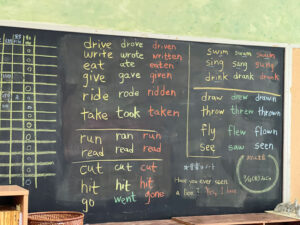 drive drove driven
write wrote written
eat ate eaten
give gave given
ride rode ridden
take took taken
run ran run
read read read
cut cut cut
hit hit hit
go went gone
swim swam swum
sing sang sung
drink drank drunk
draw drew drawn
throw threw thrown
fly flew flown
see saw seen
Have you ever seen
a